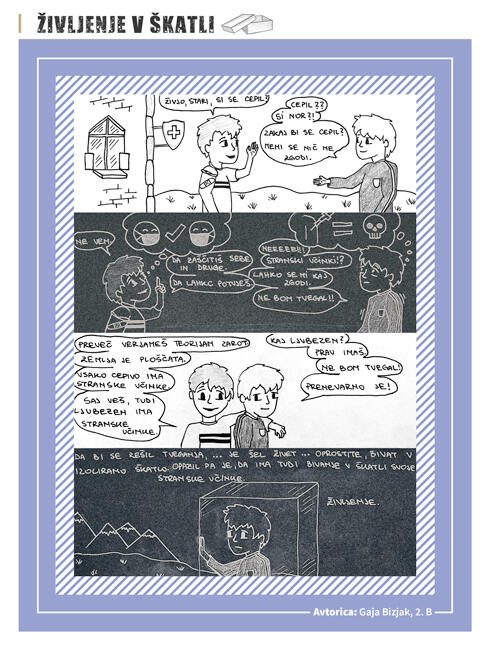 ŽIVLJENJE V ŠKATLI
ŽIVJO, STARI, SI SE CEPIL?
CEPIL??
SI NOR?!
ZAKAJ BI SE CEPIL?
MENI SE NIČ NE
ZGODI.
NE VEM,
DA ZAŠČITIŠ SEBE
IN DRUGE.
DA LAHKO POTUJEŠ.
NEEEZE!!!
STRANSKI UČINKI!?
LAHKO SE MI KAJ
ZGODI.
NE BOM TVEGAL!!
PREVEČ VERJAMEŠ TEORIJAM ZAROT.
ZEMLJA JE PLOŠČATA.
VSAKO CEPIVO IMA
STRANSKE UČINKE.
SAJ VEŠ, TUDI
LJUBEZEN IMA
STRANSKE
UČINKE.
KAJ LJUBEZEN?
PRAV IMAŠ,
NE BOM TVEGAL.
PRENEVARNO JE!
DA BI SE REŠIL TVEGANJA, ... JE ŠEL ŽIVET ... OPROSTITE, BIVAT V
IZOLIRANO ŠKATLO. OPAZIL PA JE, DA IMA TUDI BIVANJE V ŠKATLI SVOJE
STRANSKE UČINKE.
ŽIVLJENJE.
Avtorica: Gaja Bizjak, 2. B